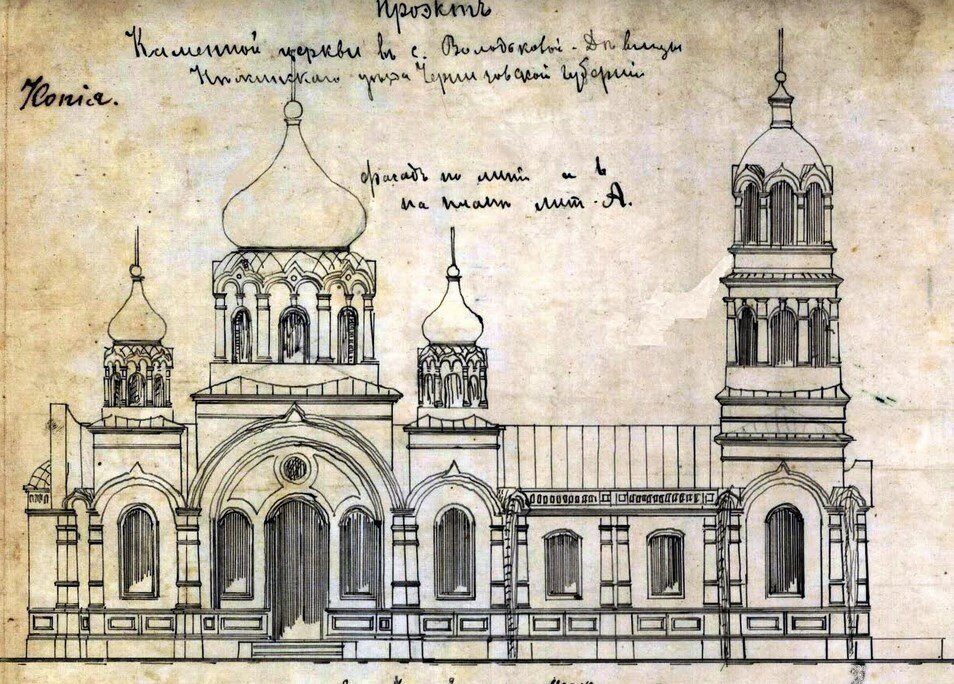 Проэктъ
Каменной церкви въ с. Володьковой-Дѣвицы
Нѣжинскаго уѣзда Черниговской Губерніи
Копія.
фасадъ по лит а в
на планѣ лит. А.